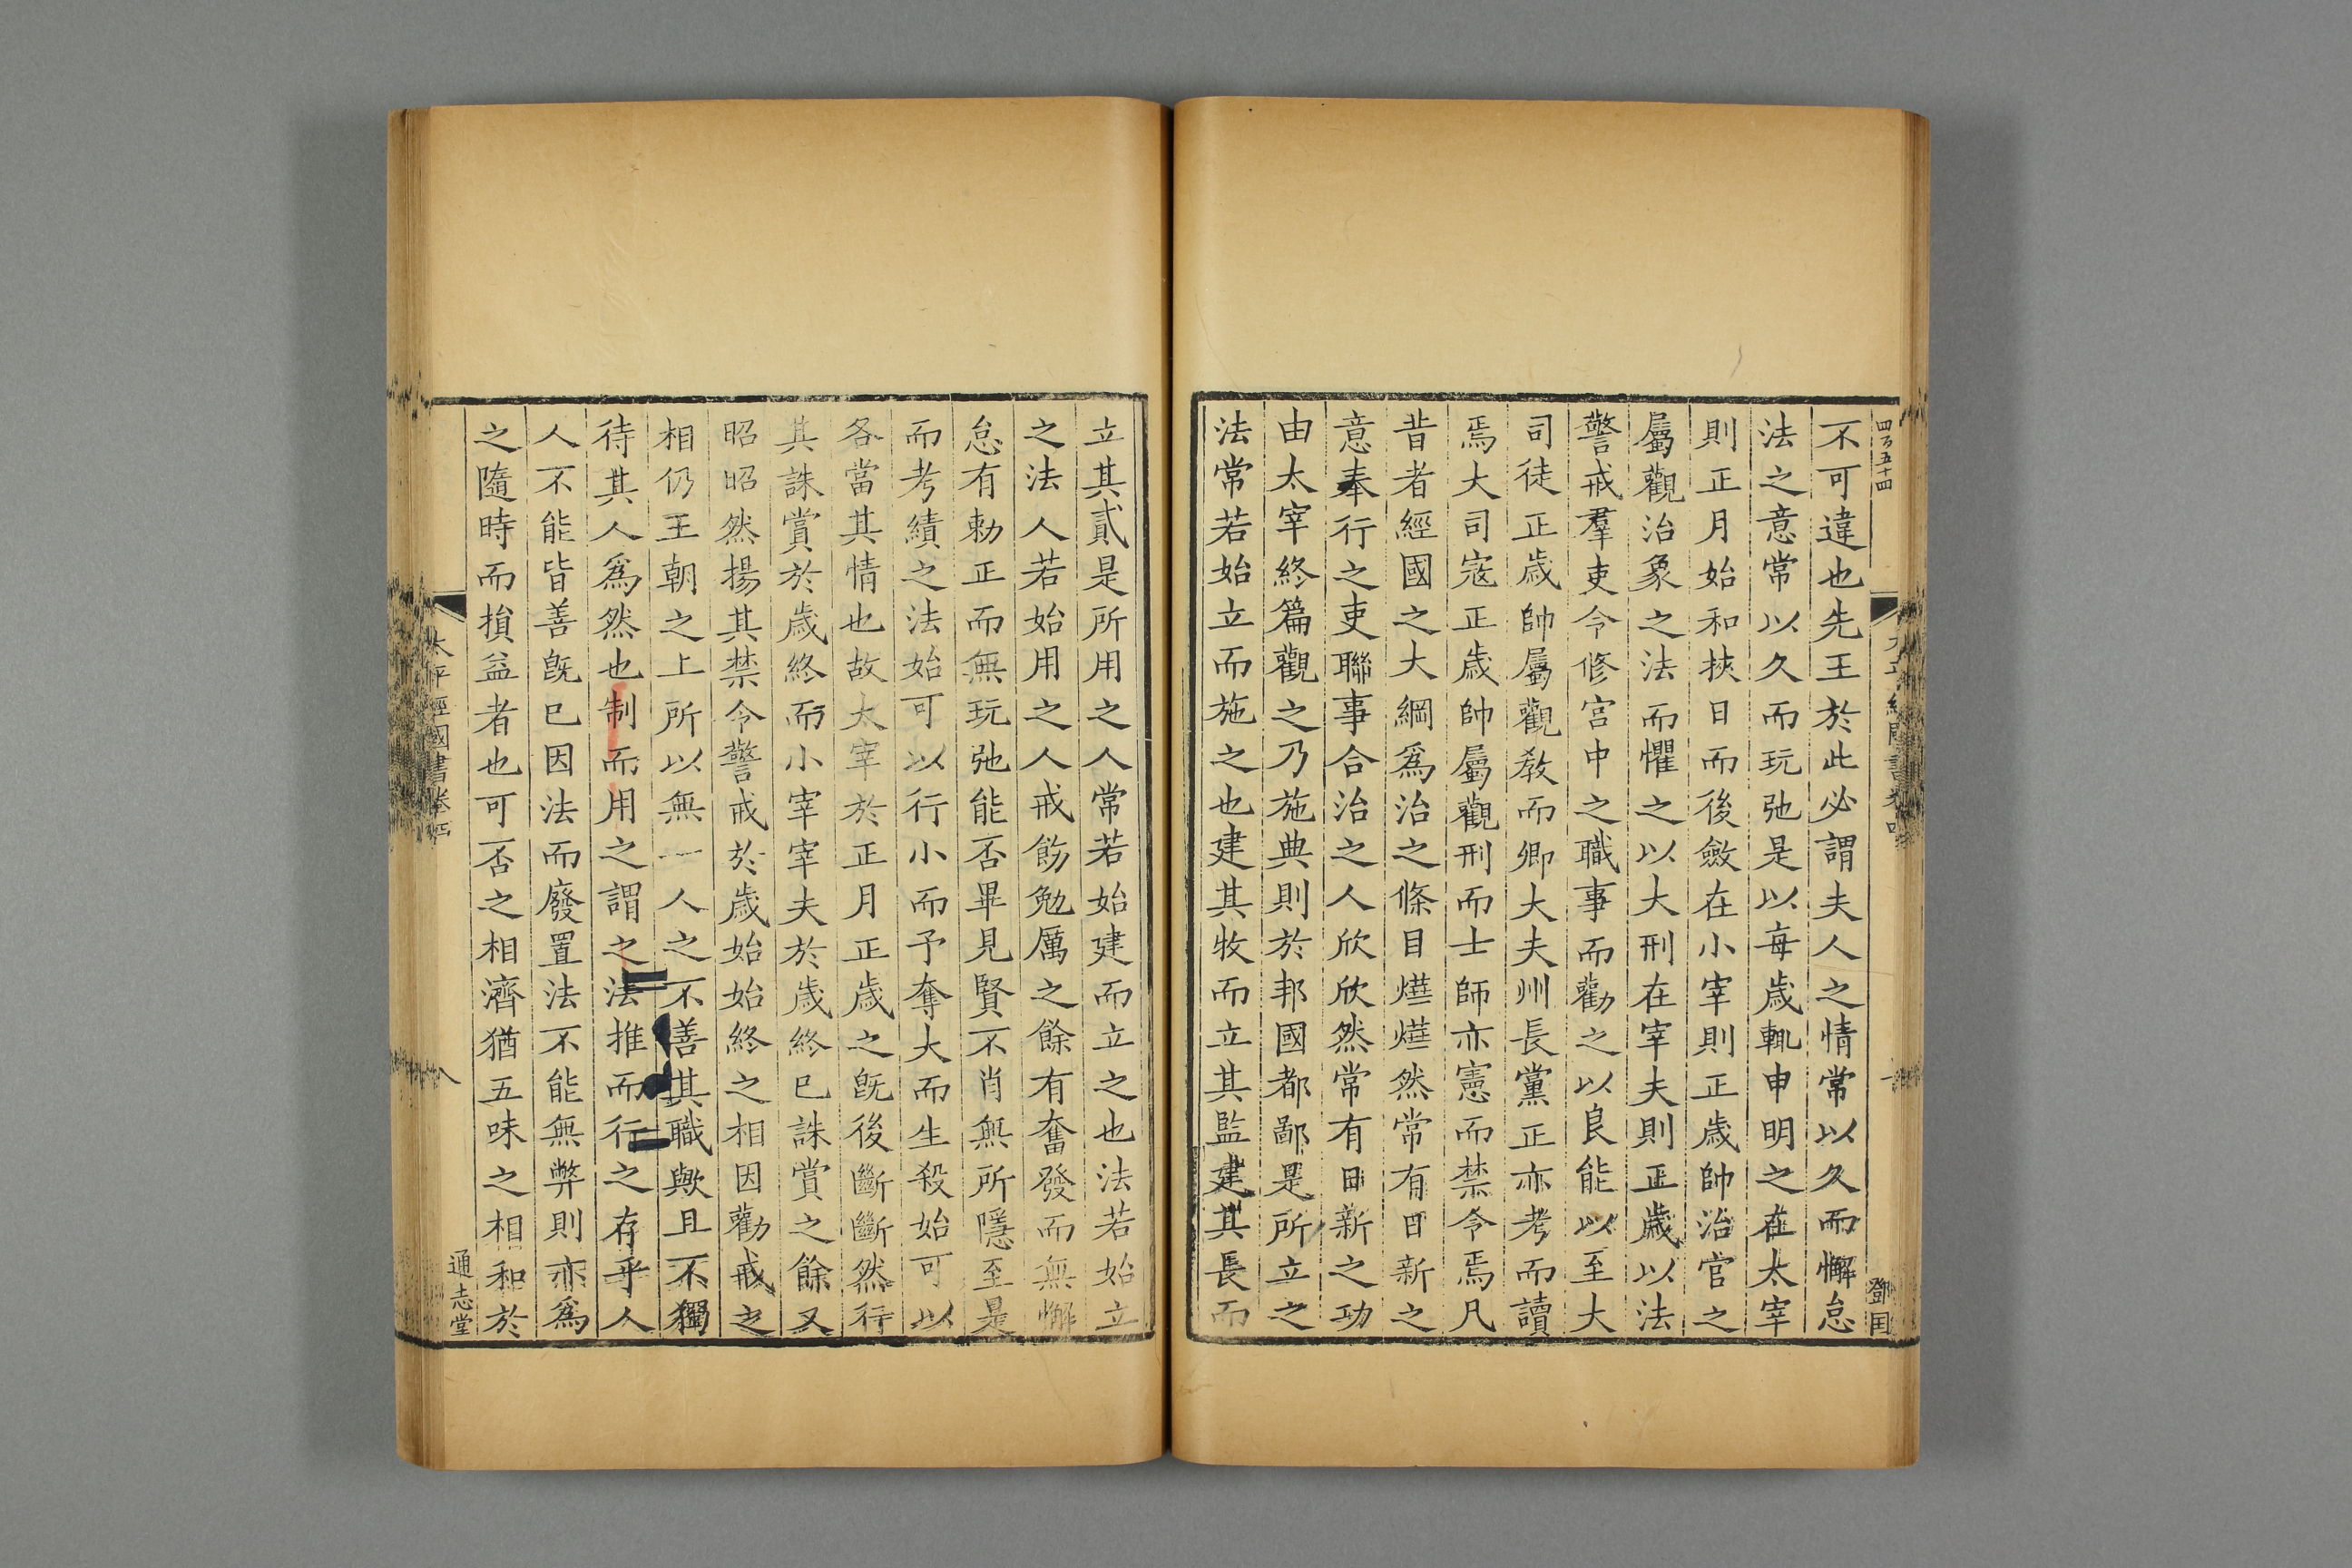 四百五十四
不可違也先王於此必謂夫人之情常以久而懈怠
法之意常以久而玩弛是以每歲輒申明之在太宰
則正月始和挾日而後斂在小宰則正歲帥治官之
屬觀治象之法而懼之以大刑在宰夫則正歲以法
警戒羣吏令修宮中之職事而勸之以良能以至大
司徒正歲帥屬觀敎而卿大夫州長黨正亦考而讀
焉大司寇正歲帥屬觀刑而士師亦憲而禁令焉凡
昔者經國之大綱爲治之條目燁燁然常有日新之
意奉行之吏聯事合治之人欣欣然常有日新之功
由太宰終篇觀之乃施典則於邦國都鄙是所立之
法常若始立而施之也建其牧而立其監建其長而
立其貳是所用之人常若始建而立之也法若始立
之法人若始用之人戒飭勉厲之餘有奮發而無懈
怠有勅正而無玩弛能否畢見賢不肖無所隱至是
而考績之法始可以行小而予奪大而生殺始可以
各當其情也故太宰於正月正歲之旣後斷斷然行
其誅賞於歲終而小宰宰夫於歲終已誅賞之餘又
昭昭然揚其禁令警戒於歲始始終之相因勸戒之
相仍王朝之上所以無一人之不善其職歟且不獨
待其人爲然也制而用之謂之法推而行之存乎人
人不能皆善旣已因法而廢置法不能無弊則亦爲
之隨時而損益者也可否之相濟猶五味之相和於
太平經國書卷
通志堂